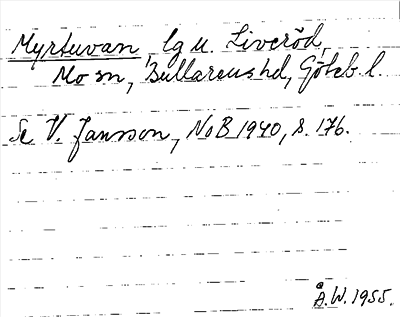 Myrtuvan, lg u. Liveröd,
Mo sn, Bullarens hd, Göteb. l.
Se V. Jansson, NoB 1940, s. 176.
Å.W. 1955.